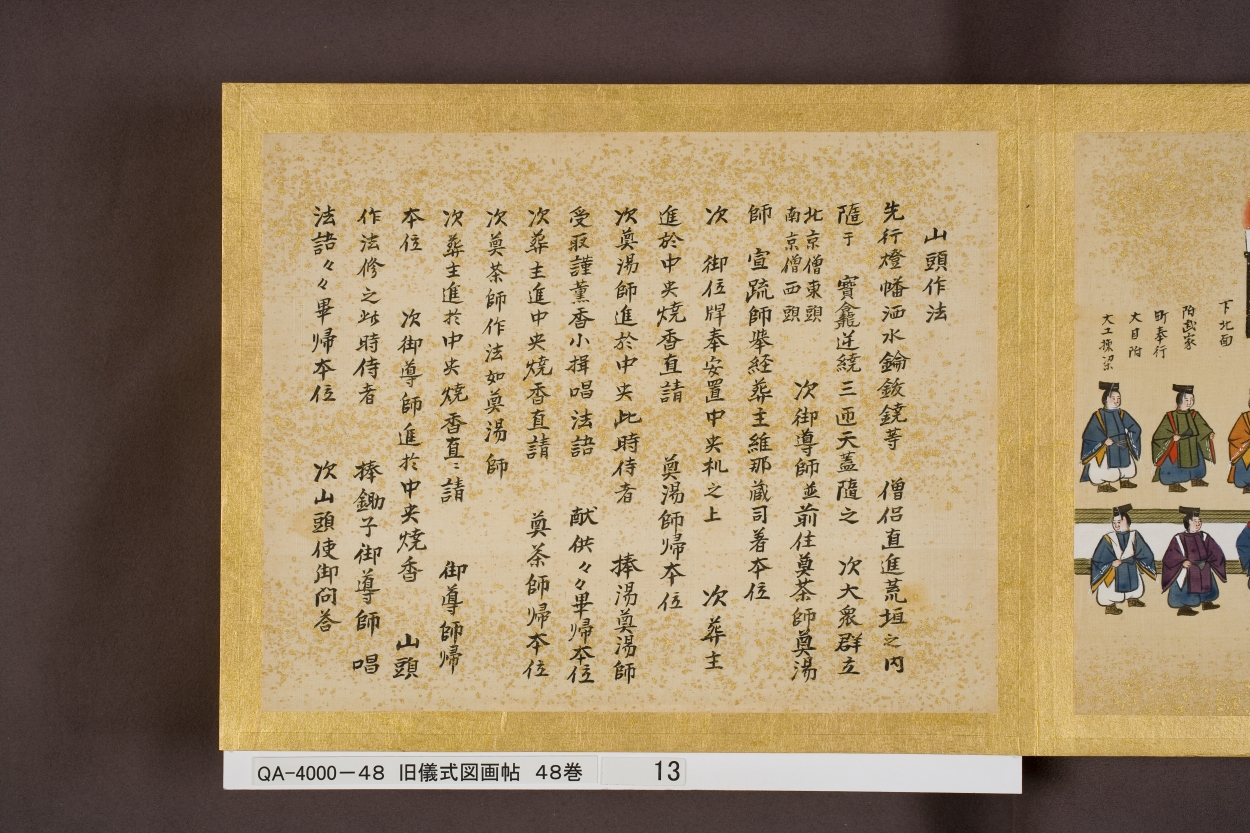 下北面
附武家
町奉行
大目附
大工棟梁
山頭作法
先行燈幡洒水鑰鈸鐃等　僧侶直進荒垣之内
隨于　寶龕逆繞三匝天蓋隨之　次大衆群立
北京僧東頭
南京僧西頭
次御導師並前住奠茶師奠湯
師　宣疏師挙経葬主維那蔵司著本位
次　御位牌奉安置中央机之上　次葬主
進於中央焼香直請　奠湯師帰本位
次奠湯師進於中央此時侍者　捧湯奠湯師
受取謹薫香小揖唱法語　献供々畢帰本位
次葬主進中央焼香直請　奠茶師帰本位
次奠茶師作法如奠湯師
次葬主進於中央焼香直ニ請　御導師帰
本位　次御導師進於中央焼香　山頭
作法修之此時侍者　捧鋤子御導師　唱
法語々々畢帰本位　次山頭使御問答
QA-4000-48　旧儀式図画帖　48巻　13